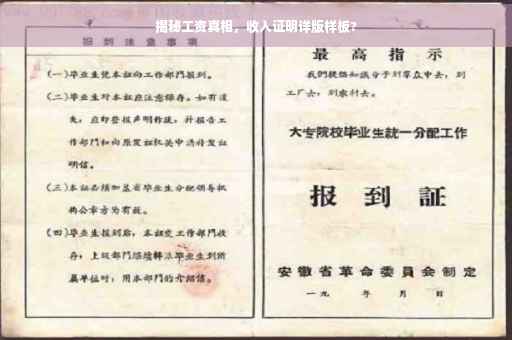 揭秘工资真相，收入证明详版样板?
报到注意事项
(一)毕业生凭本证向工作部门报到。
(二)毕业生对本证应注意保存。如有遗
失，应即登报声明作废，并报告工
作部门和向原发证机关申请补发证
明信。
(三)本证必须加盖省毕业生分配领导机
构公章方为有效。
(四)毕业生报到后，本证交工作部门收
存；上级部门继续转派毕业生到所
属单位时，用本部门的介绍信。
最高指示
我们提倡知识分子到群众中去，到
工厂去，到农村去。
大专院校毕业生統一分配工作
报到証
安徽省革命委員会制定
一九 年 月 日